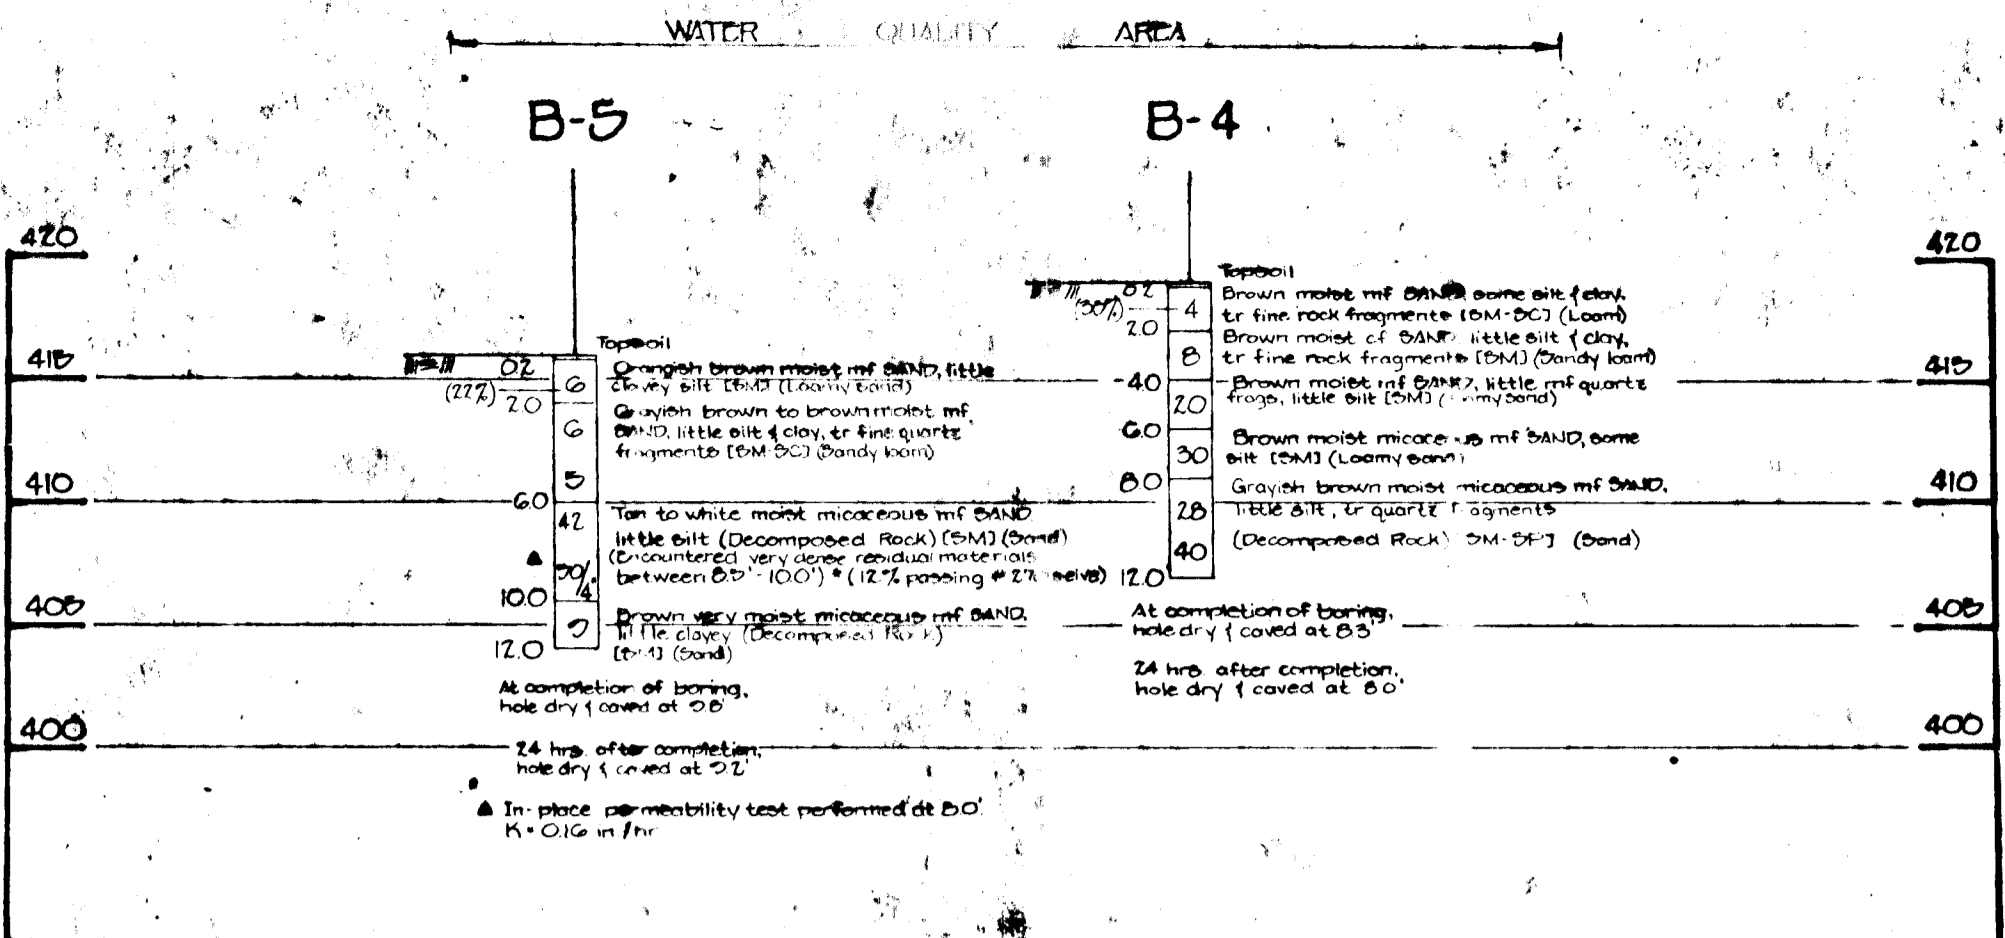 WATER QUALITY AREA
B-5
B-4
420
415
410
405
400
420
415
410
405
400
Topsoil
0.2
(22%)
2.0
6.0
10.0
12.0
6
6
5
42
50/4
Orangish brown moist mf SAND, little
clayey silt [SM] (Loamy Sand)
Grayish brown to brown moist mf
SAND, little silt & clay, tr fine quartz
fragments [SM-SC] (Sandy loam)
Tan to white moist micaceous mf SAND
little silt (Decomposed Rock) [SM] (Sand)
(Encountered very dense residual materials
between 8.5' - 10.0') * (12% passing #
Brown very moist micaceous mf SAND,
little clayey (Decomposed Rock)
[SM] (Sand)
At completion of boring,
hole dry & caved at
24 hrs. after completion,
hole dry & caved at
▲ In-place permeability test performed at 8.0'
K = 0.16 in/hr
Topsoil
0.2
(30%)
2.0
4.0
6.0
8.0
12.0
4
8
20
30
28
40
Brown moist mf SAND some silt & clay,
tr fine rock fragments [SM-SC] (Loam)
Brown moist cf SAND little silt & clay,
tr fine rock fragments [SM] (Sandy loam)
Brown moist mf SAND, little mf quartz
frags, little silt [SM] (Loamy sand)
Brown moist micaceous mf SAND, some
silt [SM] (Loamy sand)
Grayish brown moist micaceous mf SAND,
little silt, tr quartz fragments
(Decomposed Rock) SM-SP] (Sand)
At completion of boring,
hole dry & caved at 8.3'
24 hrs. after completion,
hole dry & caved at 8.0'